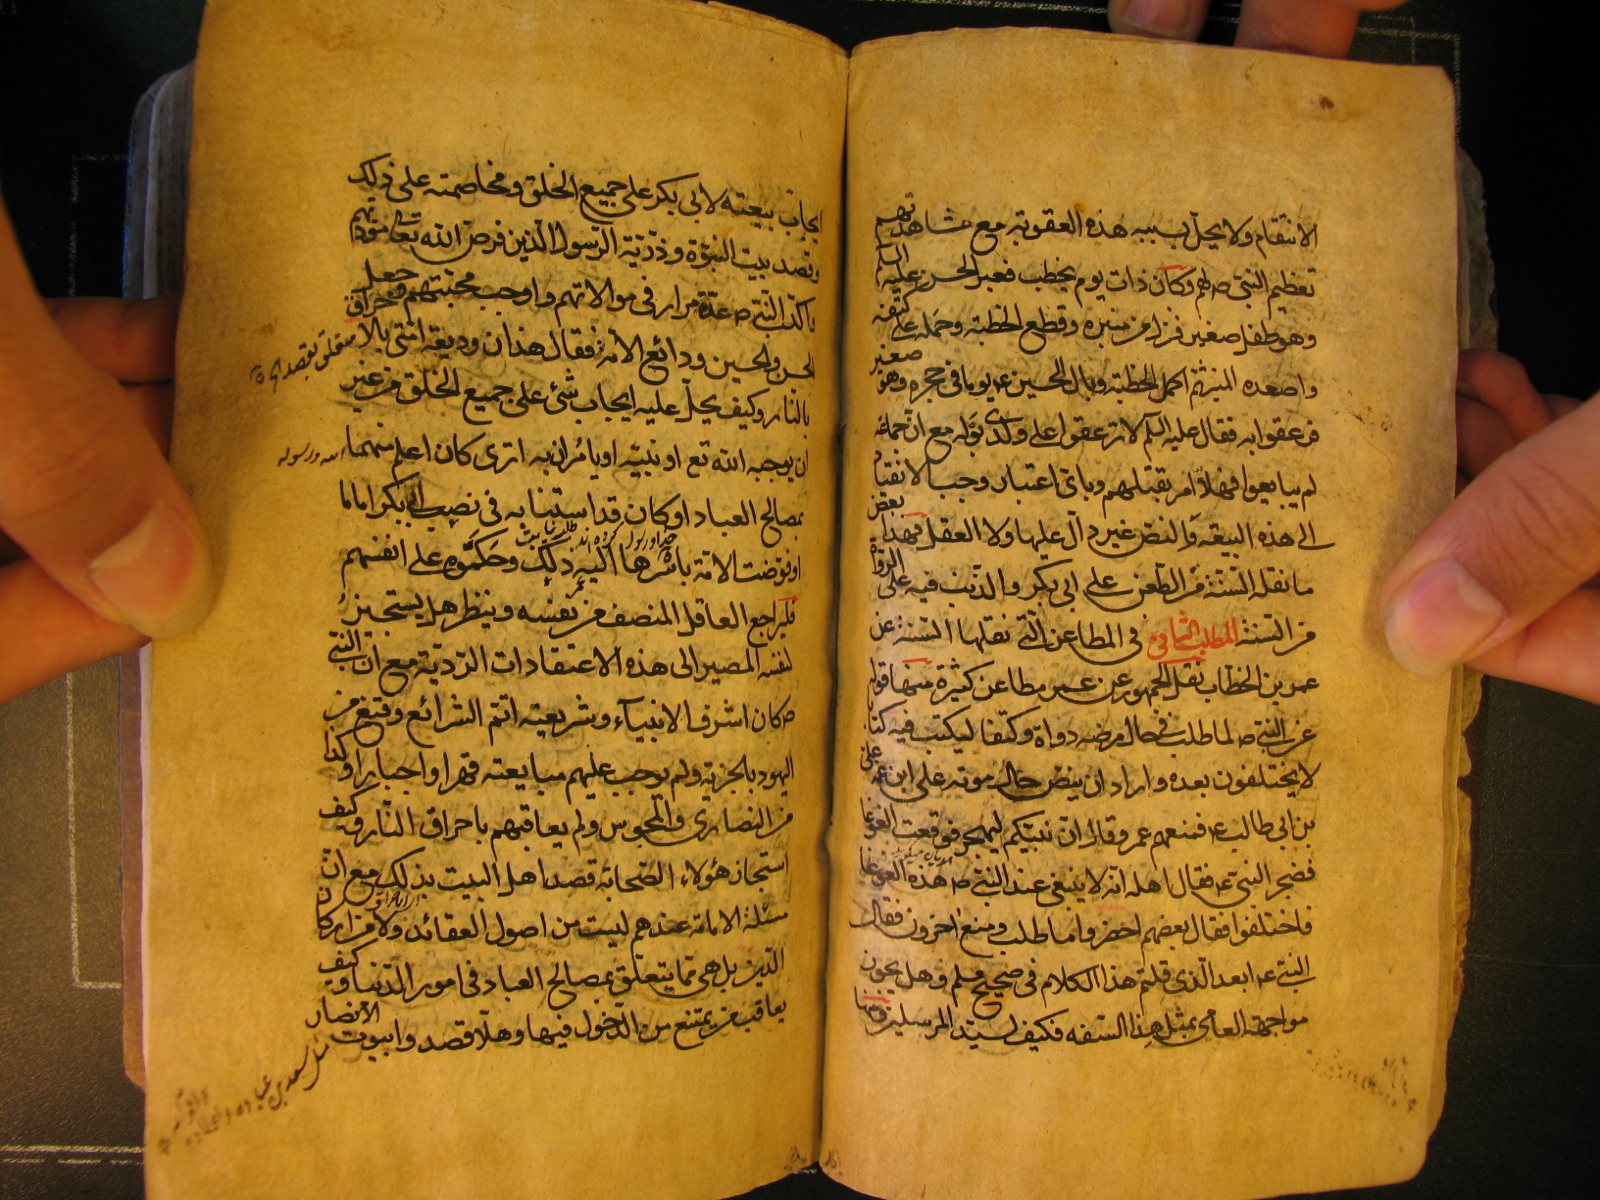 الانتقام ولا يحل بسببه هذه العقوبة مع مشاهدتهم
تعظيم النبي ص لهم وكان ذات يوم يخطب فعبر الحسن عليه السلم
وهو طفل صغير فنزل من منبره وقطع الخطبة وحمله على كتفه
واصعده المنبر ثم اكمل الخطبة وبال الحسين ع يوما في حجره وهو صغير
فزعقوا به فقال عليه السلم لا تزعقوا على ولدي بوله مع ان جماعة
لم يبايعوا فهلا امر بقتلهم وباي اعتبار وجب الانقياد
الى هذه البيعة والنص غير دال عليها ولا العقل فهذا بعض
ما نقله السنة من الطعن على ابي بكر والذنب فيه على الرواة
من السنة المطلب الثاني في المطاعن التي نقلها السنة عن
عمر بن الخطاب نقل الجمهور عن عمر مطاعن كثيرة منها قوله
عن النبي ص لما طلب في حال مرضه دواة وكتفا ليكتب فيه كتابا
لا يختلفون بعده واراد ان ينص حال موته على ابن عمه على
بن ابي طالب ع فمنعهم عمر وقال ان نبيكم ليهجر فوقعت الغوغا
فضجر النبي ع فقال اهله انه لا ينبغي عند النبي ص هذه الغوغا
فاختلفوا فقال بعضهم احضروا ما طلب ومنع اخرون فقال
النبي ع ابعد الذي قلتم هذا الكلام في صحيح مسلم وهل يجوز
مواجهة العامي بمثل هذا السفه فكيف لسيد المرسلين ومنها
ايجاب بيعته لابي بكر على جميع الخلق ومخاصمته على ذلك
وقصد بيت النبوة وذرية الرسول الذين فرض الله تعالى مودتهم
واكد النبي ص عدة مرار في موالاتهم واوجب محبتهم وجعل
الحسن والحسين ودائع الامة فقال هذان وديعة امتي بالاحراق
بالنار وكيف يحل عليه ايجاب شئ على جميع الخلق من غير
ان يوجبه الله تع او نبيه او يامران به اترى كان اعلم منهما
الله ورسوله
بمصالح العباد او كان قد استنابه في نصب ابي بكر اماما
او فوضت الامة باسرها اليه ذلك وحكموه على انفسهم
فليراجع العاقل المنصف من نفسه وينظر هل يستجيز
لنفسه المصير الى هذه الاعتقادات الردية مع ان النبي
ص كان اشرف الانبياء وشريعته اتم الشرائع وقنع من
اليهود بالجزية ولم يوجب عليهم مبايعته قهرا واجبارا وكذا
من النصارى والمجوس ولم يعاقبهم باحراق النار وكيف
استجاز هؤلاء الصحابة قصد اهل البيت بذلك مع ان
مسئلة الامامة عندهم ليست من اصول العقائد ولا من اركان
الدين بل هي مما يتعلق بمصالح العباد في امور الدنيا وكيف
يعاقب من يمتنع من الدخول فيها وهلا قصدوا بيوت الانصار
مثل سعد بن عبادة